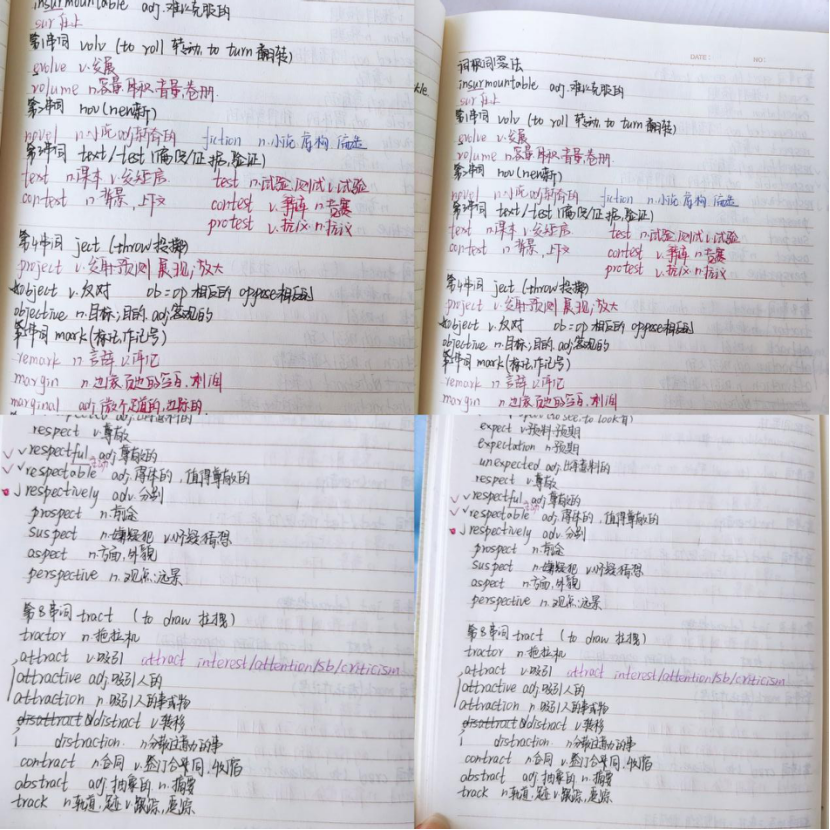 insurmountable adj.难以克服的
sur 在上
第1串词 volv (to roll 转动, to turn 翻转)
evolve v.发展
volume n.容量,体积,音量,卷册
第2串词 nov (new新)
novel n.小说 adj.新奇的 fiction n.小说,虚构,编造
第3串词 text/test (编织/证据,验证)
text n.课本 v.发短信 test n.试验,测试 v.试验
context n.背景,上下文 contest v.争辩 n.竞赛
protest v.抗议 n.抗议
第4串词 ject (throw 投掷)
project v.发射,预测,展现,放大
object v.反对 ob=op 相反的 oppose相反
objective n.目标;目的 adj.客观的
第5串词 mark (标记,作记号)
remark n.言辞 v.评论
margin n.边缘,页边的空白,利润
marginal adj.微不足道的,边际的
DATE: NO:
词根词裂法
insurmountable adj.难以克服的
sur 在上
第1串词 volv (to roll 转动, to turn 翻转)
evolve v.发展
volume n.容量,体积,音量,卷册
第2串词 nov (new新)
novel n.小说 adj.新奇的 fiction n.小说,虚构,编造
第3串词 text/test (编织/证据,验证)
text n.课本 v.发短信 test n.试验,测试 v.试验
context n.背景,上下文 contest v.争辩 n.竞赛
protest v.抗议 n.抗议
第4串词 ject (throw 投掷)
project v.发射,预测,展现,放大
object v.反对 ob=op 相反的 oppose相反
objective n.目标;目的 adj.客观的
第5串词 mark (标记,作记号)
remark n.言辞 v.评论
margin n.边缘,页边的空白,利润
respect v.尊敬
respectful adj.尊敬的
respectable adj.得体的,值得尊敬的
respectively adv.分别
prospect n.前途
suspect n.嫌疑犯 v.怀疑,猜想
aspect n.方面,外貌
perspective n.观点;远景
第8串词 tract (to draw 拉,拽)
tractor n.拖拉机
attract v.吸引 attract interest/attention/sb/criticism
attractive adj.吸引人的
attraction n.吸引人的事或物
distract v.转移
distraction n.分散注意力的事
contract n.合同 v.签订合同,收缩
abstract adj.抽象的 n.摘要
track n.轨道,足迹 v.跟踪,追踪
expect v.预料,预期
expectation n.预期
unexpected adj.出乎意料的
respect v.尊敬
respectful adj.尊敬的
respectable adj.得体的,值得尊敬的
respectively adv.分别
prospect n.前途
suspect n.嫌疑犯 v.怀疑,猜想
aspect n.方面,外貌
perspective n.观点;远景
第8串词 tract (to draw 拉,拽)
tractor n.拖拉机
attract v.吸引 attract interest/attention/sb/criticism
attractive adj.吸引人的
attraction n.吸引人的事或物
distract v.转移
distraction n.分散注意力的事
contract n.合同 v.签订合同,收缩
abstract adj.抽象的 n.摘要
track n.轨道,足迹 v.跟踪,追踪